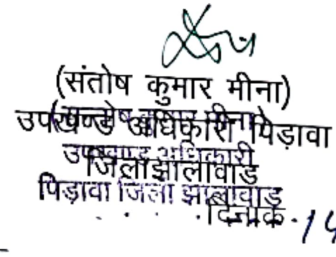 (संतोष कुमार मीना)
उपखण्ड अधिकारी पिड़ावा
उपखण्ड अधिकारी
जिला झालावाड
पिड़ावा जिला झालावाड़
दिनांक